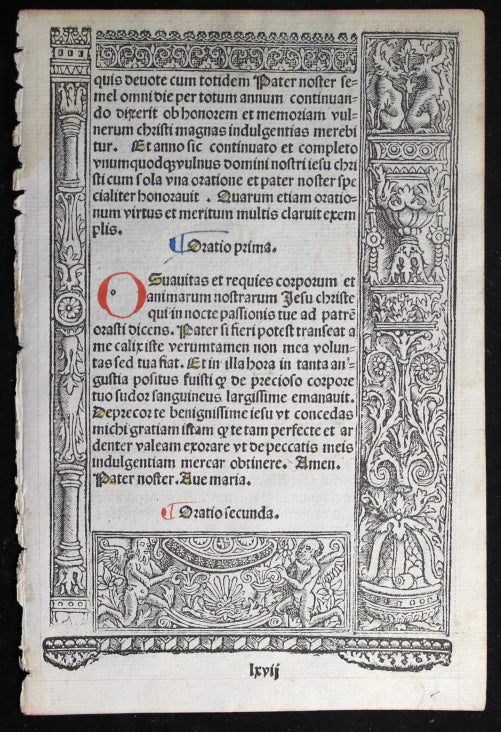 quis deuote cum totidem Pater noster se-
mel omni die per totum annum continuan-
do dixerit ob honorem et memoriam vul-
nerum christi magnas indulgentias merebi
tur. Et anno sic continuato et completo
vnumquodqꝫ vulnus domini nostri iesu chri
sti cum sola vna oratione et pater noster spe
cialiter honorauit . Quarum etiam oratio-
num virtus et meritum multis claruit exem
plis.
¶ Oratio prima.
O Suauitas et requies corporum et
animarum nostrarum Jesu christe
qui in nocte passionis tue ad patrē
orasti dicens. Pater si fieri potest transeat a
me calix iste verumtamen non mea volun-
tas sed tua fiat. Et in illa hora in tanta an-
gustia positus fuisti ꝙ de precioso corpore
tuo sudor sanguineus largissime emanauit.
Deprecor te benignissime iesu vt concedas
michi gratiam istam ꝙ te tam perfecte et ar
denter valeam exorare vt de peccatis meis
indulgentiam merear obtinere. Amen.
Pater noster. Aue maria.
¶ Oratio secunda.
lxvij